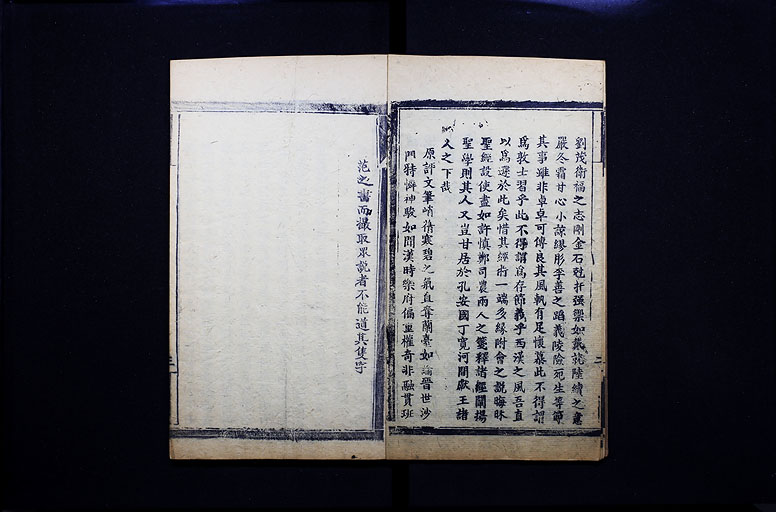 劉茂衛福之志剛金石尅扞强禦如戴就陸續之意
嚴冬霜甘心小諒繆肜李善之蹈義陵險死生等節
其事雖非卓卓可傳良其風軌有足懷慕此不得謂
爲敦士習乎此不得謂爲存節義乎西漢之風吾直
以爲遜於此矣惜其經術一端多緣附會之說晦昧
聖經設使盡如許慎鄭司農兩人之箋釋諸經闡揚
聖學則其人又豈甘居於孔安國丁寬河間獻王諸
人之下哉
原評文筆峭蒨寒碧之氣直奪蘭臺如論晉世沙
門特憐神駿如聞漢時樂府偏重權奇非融貫班
范之書而攝取眾說者不能道其隻字
二